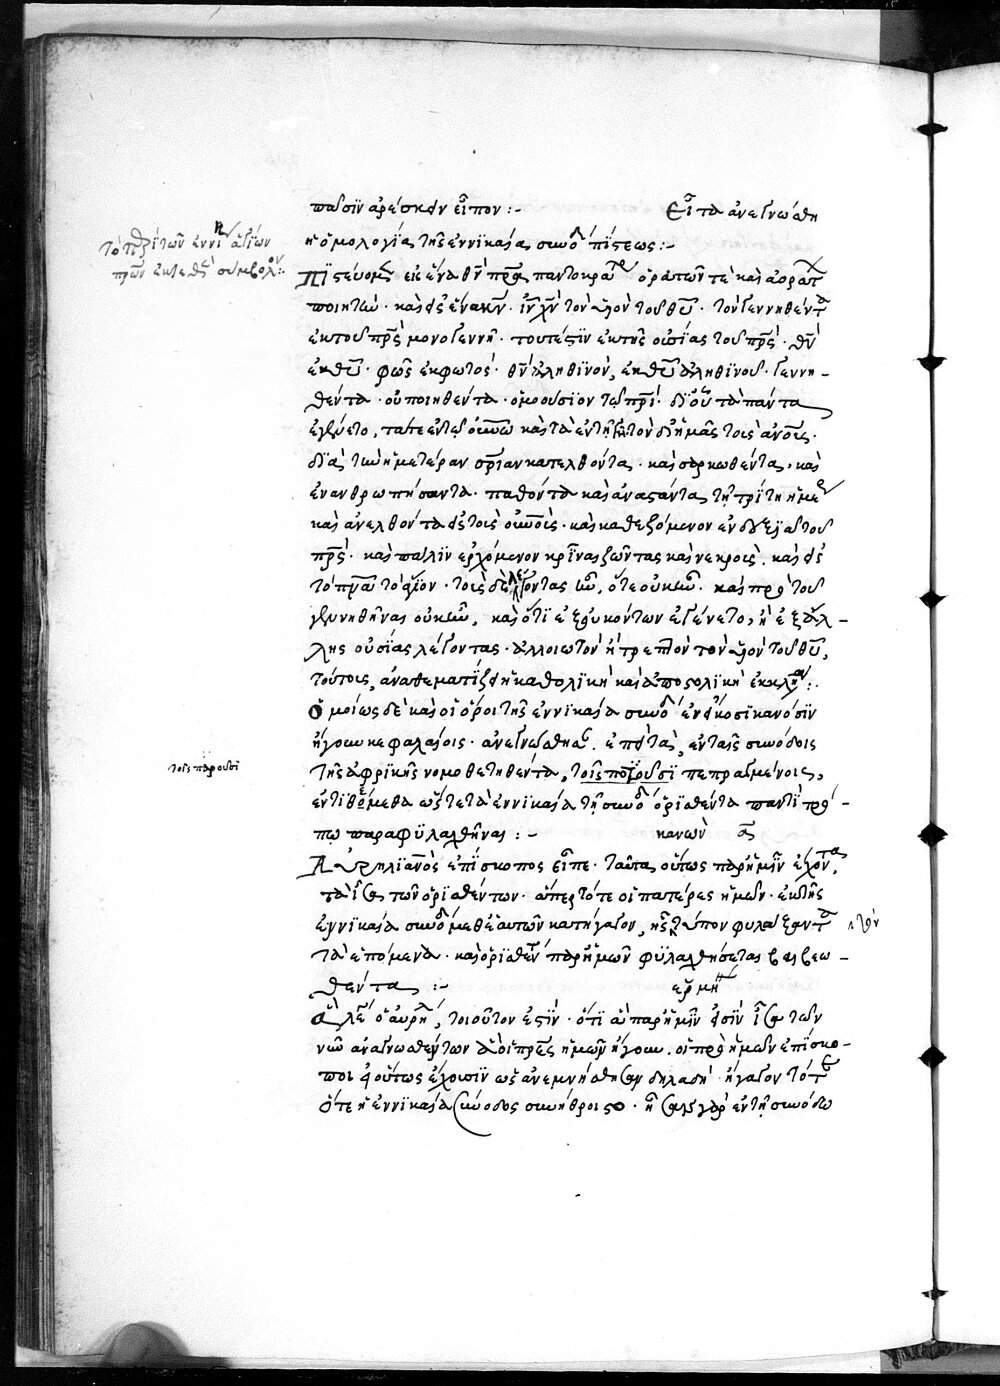 πᾶσιν ἀρέσκειν εἶπον :- Εἶτα ἀνεγνώσθη
ἡ ὁμολογία τῆς ἐν νικαία συνόδ πίστεως :-
τῶν ἐν νι ἁγίων
πρων ἐκτεθ σύμβολον :-
Πιστεύομεν εἰς ἕνα θν πρα παντοκρατο ὁρατῶν τὲ καὶ ἀοράτ
ποιητὴν · καὶ εἰς ἕνα κν · ιν χν τὸν υἱὸν τοῦ θυ · τὸν γεννηθέντα
ἐκ τοῦ πρς μονογεννῆ · τουτέστιν ἐκ τῆς οὐσίας τοῦ πρς · θν
ἐκ θυ · φῶς ἐκ φωτός · θν ἀληθινὸν, ἐκ θυ ἀληθινοῦ · γεννη -
θέντα · οὐ ποιηθέντα · ὁμοούσιον τῷ πρι · δι οὗ τὰ πάντα
ἐγένετο, τά τε ἐν τῷ ουνω καὶ τὰ ἐν τῇ γῇ · τὸν δι ἡμᾶς τοὺς ανους ·
διὰ τὴν ἡμετέραν σριαν κατελθόντα · καὶ σαρκωθέντα, καὶ
ἐνανθρωπήσαντα · παθόντα καὶ ἀναστάντα τῇ τρίτη ἡμε
καὶ ἀνελθόντα εἰς τοὺς ουνους · καὶ καθεζόμενον ἐν δεξιᾶ τοῦ
πρς · καὶ πάλιν ἐρχόμενον κρῖναι ζῶντας καὶ νεκροὺς · καὶ εἰς
τὸ πνα τὸ ἅγιον · τοὺς δὲ λέγοντας ἦν, ὅτε οὐκ ἦν · καὶ πρὸ τοῦ
γεννηθῆναι οὐκ ἦν, καὶ ὅτι ἐξ οὐκ ὄντων ἐγένετο, ἢ ἐξ ἄλ -
λης οὐσίας λέγοντας · ἀλλοιωτὸν ἢ τρεπτὸν τὸν υἱὸν τοῦ θυ,
τούτους, ἀναθεματίζει ἡ καθολικὴ καὶ ἀποστολικὴ ἐκκλησία :.
Ὁμοίως δὲ καὶ οἱ ὅροι τῆς ἐν νικαία συνόδ ἐν εἴκοσι κανόσιν
ἤγουν κεφαλαίοις · ἀνεγνώσθησ · ἔπειτα, ἐν ταῖς συνόδοις
τοῖς παροῦσι
τῆς ἀφρικῆς νομοθετηθέντα, τοῖς ποιοῦσι πεπραγμένοις,
ἐντιθέμεθα ὥστε τὰ ἐν νικαία τῇ συνόδ ὁρισθέντα παντὶ τρό -
πω παραφυλαχθῆναι :- κανὼν α
Αὐρηλιανὸς ἐπίσκοπος εἶπε · ταῦτα οὕτως παρ ἡμῖν ἔχοντα,
τὰ ἴσα τῶν ὁρισθέντων · ἅπερ τότε οἱ πατέρες ἡμῶν · ἐκ τῆς
ἐν νικαία συνόδ μεθ ἑαυτῶν κατήγαγον, ἧς τύπον φυλάξαντ
τὰ ἑπόμενα · καὶ ὁρισθέντ παρ ἡμῶν φυλαχθήσεται βεβεω -
θέντα :- ἑρμη
λε ὁ αὐρη, τοιοῦτον ἐστὶν · ὅτι αἱ παρ ἡμῖν εἰσὶν ἴσα τῶν
νῦν ἀναγνωσθέντων ἃ οἱ πρες ἡμῶν ἤγουν · οἱ πρὸ ἡμῶν ἐπίσκο -
ποι οὕτως ἔχουσιν ὡς ἀνεμνήσθησαν δηλαδὴ ἤγαγον τότ
ὅτε ἡ ἐν νικαία σύνοδος συνήθροιστο · ἦσαν γὰρ ἐν τῇ συνόδω